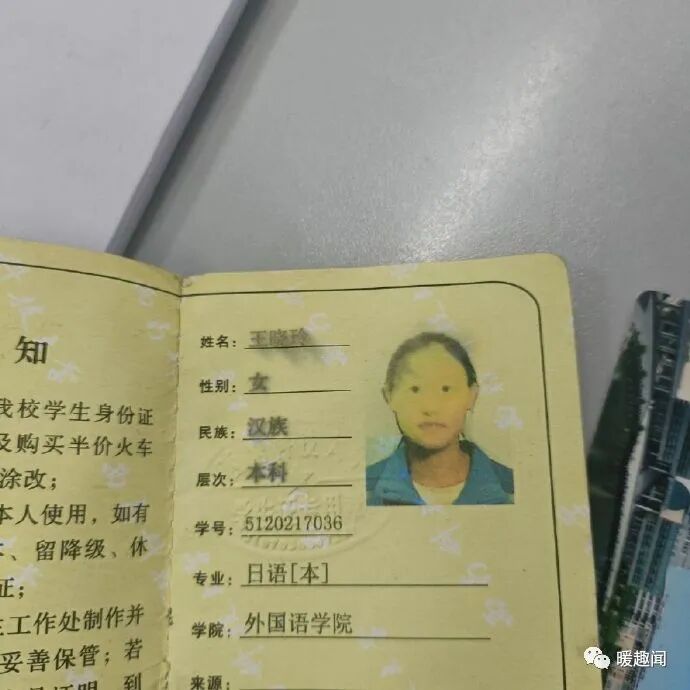 知
我校学生身份证
及购买半价火车
涂改；
本人使用，如有
、留降级、休
证；
生工作处制作并
妥善保管；若
姓名：王晓玲
性别：女
民族：汉族
层次：本科
学号：5120217036
专业：日语[本]
学院：外国语学院
来源：
暖趣闻